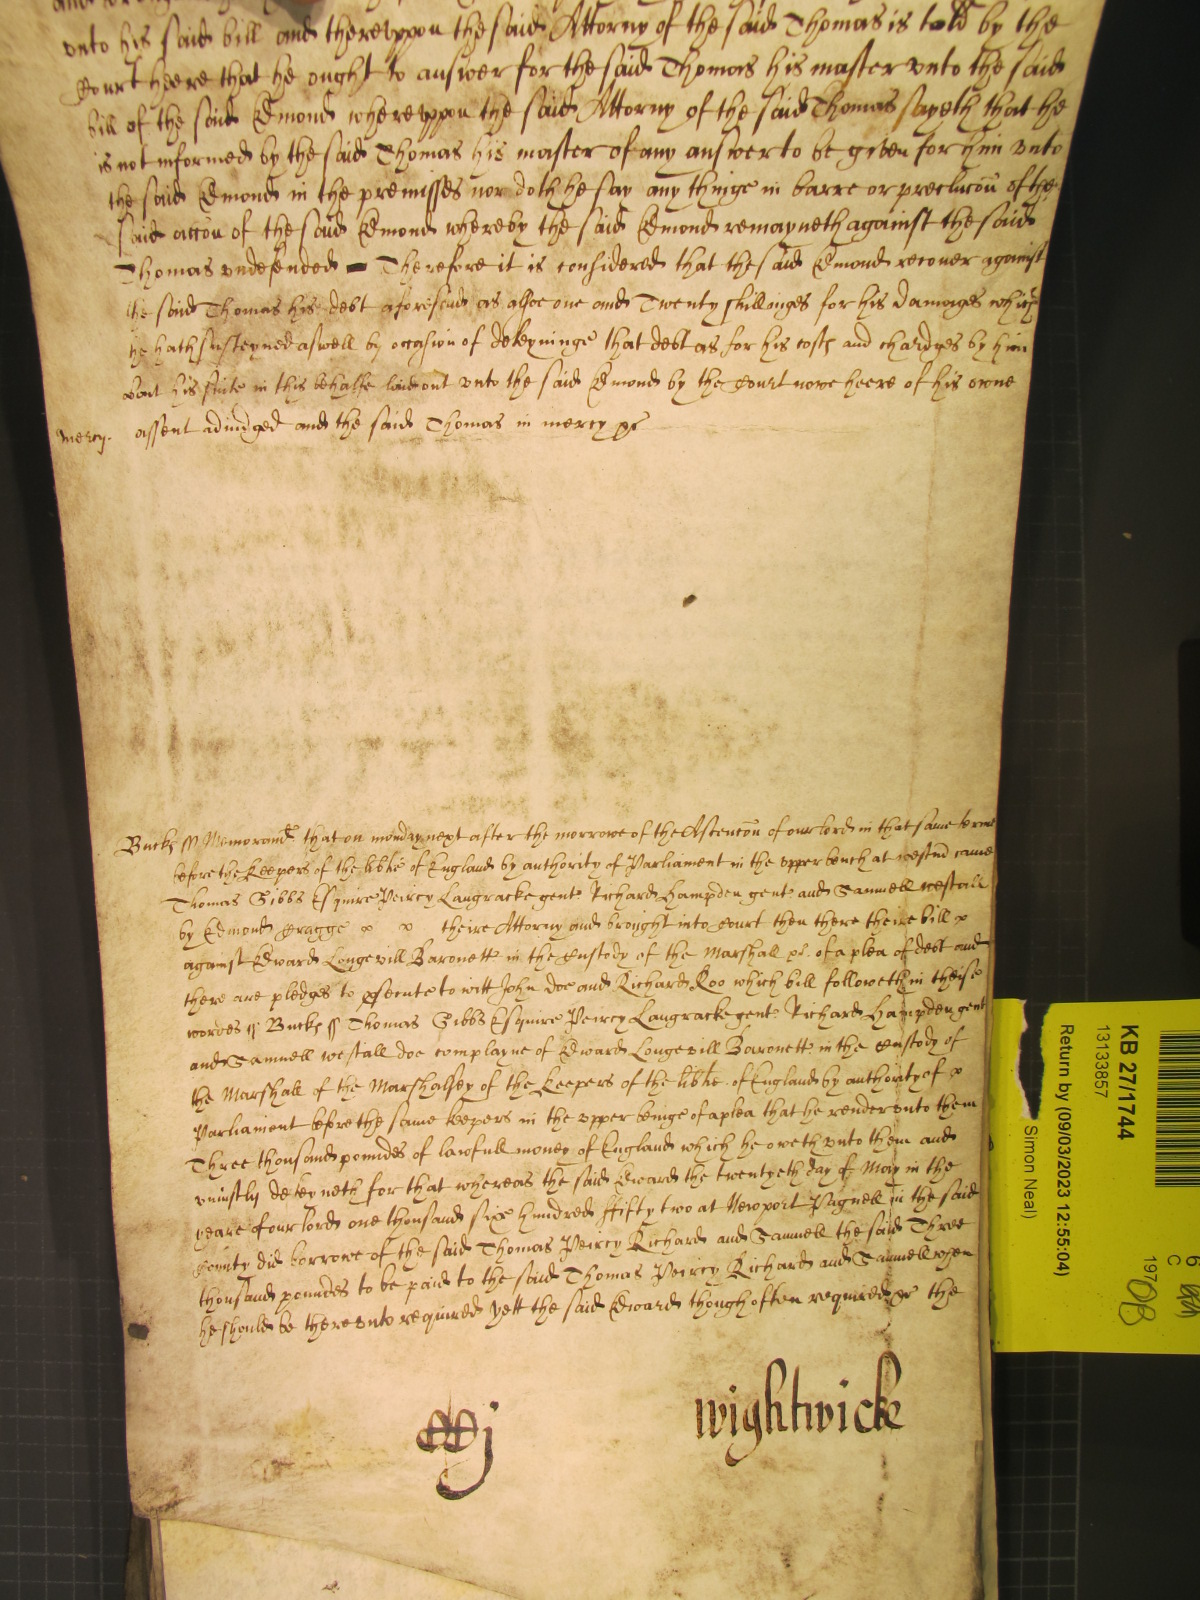 vnto his said bill and therevppon the said Attorny of the said Thomas is told by the
Court heere that he ought to answer for the said Thomas his master vnto the said
bill of the said Edmond wherevppon the said Attorny of the said Thomas sayeth that he
is not informed by the said Thomas his master of any answer to be given for him vnto
the said Edmond in the premisses nor doth he say any thinge in barre or preclucõn of the
said accõn of the said Edmond whereby the said Edmond remayneth against the said
Thomas vndefended Therefore it is considered that the said Edmond recover against
the said Thomas his debt aforesaid as alsoe one and Twenty shillinges for his damages which
he hath susteyned aswell by occasion of deteyninge that debt as for his costs and chardges by him
about his suite in this behalfe laid out vnto the said Edmond by the Court nowe heere of his owne
mercy. assent adiudged and the said Thomas in mercy &c
Bucks ss Memorand that on monday next after the morrowe of the Ascencõn of our lord in that same terme
before the keepers of the libtie of England by authority of Parliament in the vpper bench at westm came
Thomas Gibbs Esquire Peircy Langracke gent Richard Hampden gent and Samuell westall
by Edmond Cragge x x theire Attorny and brought into Court then there theire bill x
against Edward Longevill Baronett in the Custody of the Marshall &c of a plea of debt and
there are pledges to psecute to witt John Doe and Richard Roo which bill followeth in theise
wordes ss Bucks ss Thomas Gibbs Esquire Peircy Langracke gent Richard Hampden gent
and Samuell westall doe complayne of Edward Longevill Baronett in the Custody of
the Marshall of the Marshalsey of the keepers of the libtie of England by authority of x
Parliament before the same keepers in the vpper benige of a plea that he render vnto them
Three thousand poundes of lawfull money of England which he oweth vnto them and
vniustly deteyneth for that whereas the said Edward the twentyeth day of May in the
yeare of our lord one thousand six hundred ffifty two at Newport Pagnell in the said
County did borrowe of the said Thomas Peircy Richard and Samuell the said Three
thousand poundes to be paid to the said Thomas Peircy Richard and Samuell when
he should be therevnto required yett the said Edward though often required &c the
wightwicke
KB 27/1744
13133857
Return by (09/03/2023 12:55:04)
Simon Neal)